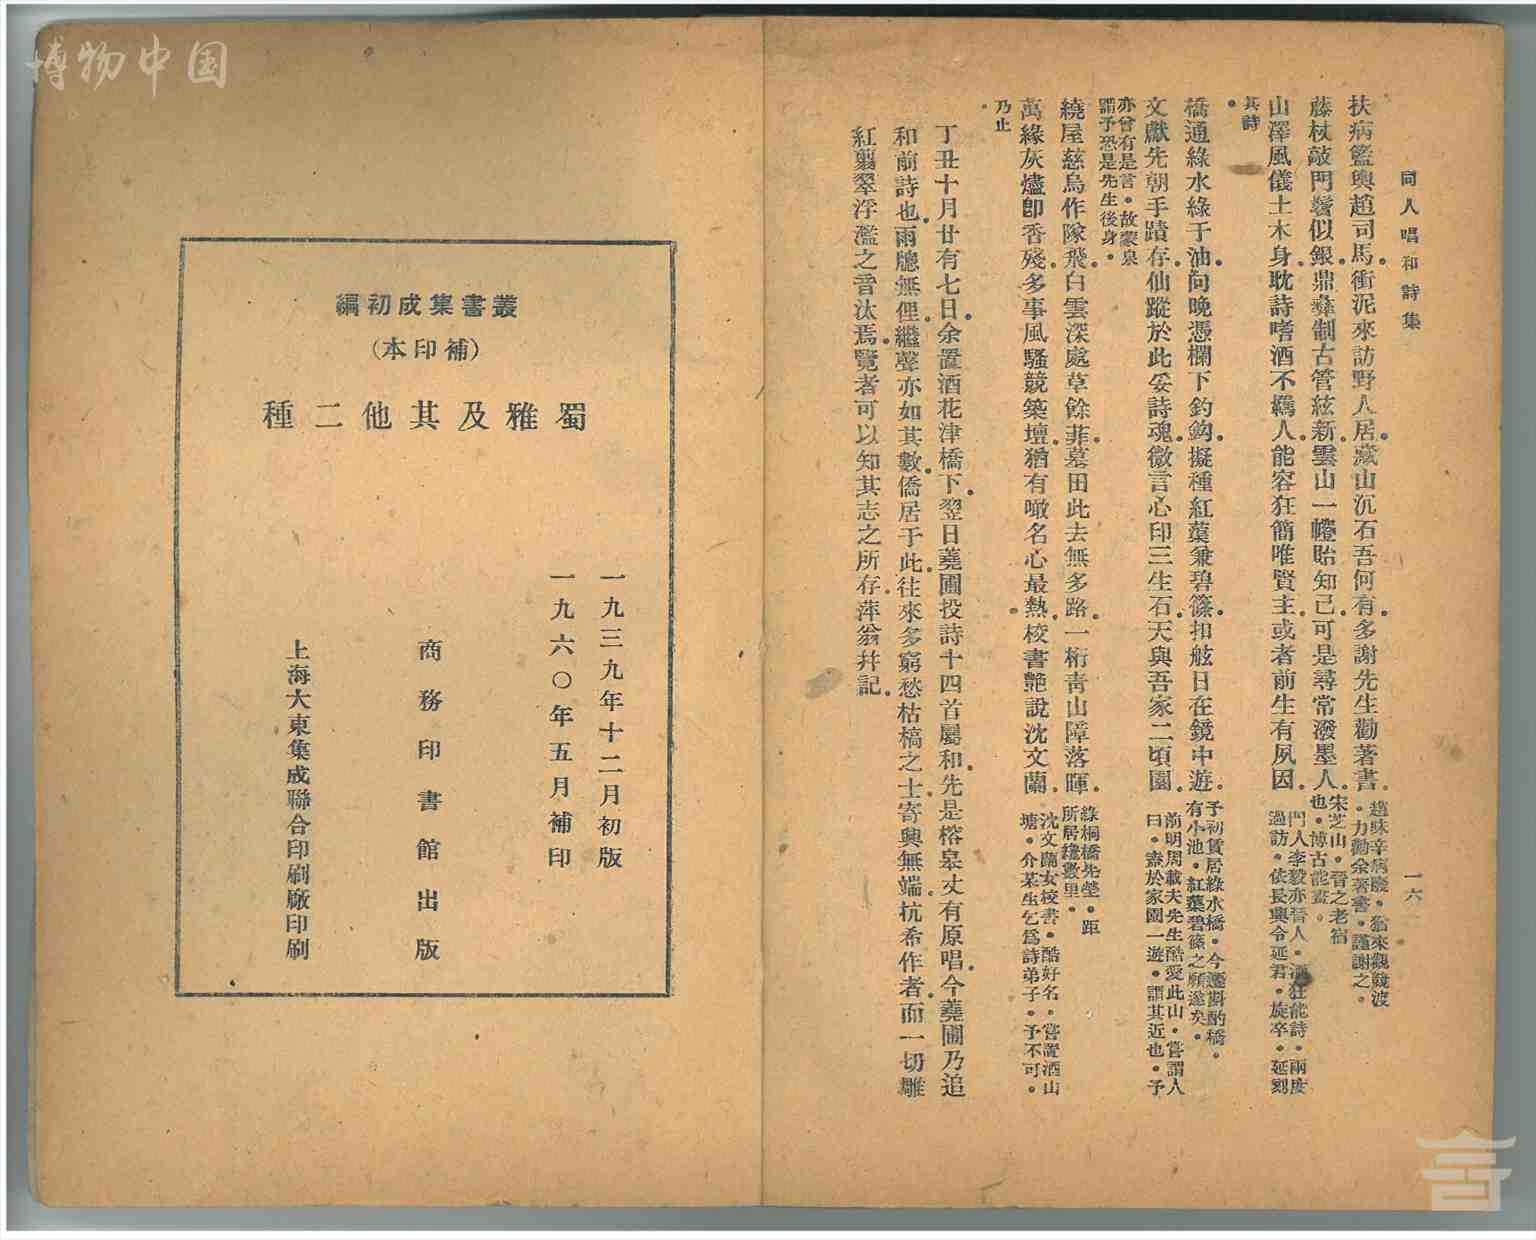 博物中国
同人唱和詩集
一六
扶病籃輿趙司馬衝泥來訪野人居藏山沉石吾何有多謝先生勸著書
趙味辛病酸。猶來觀競渡
。力勸余著書。謹謝之。
藤杖敲門鬢似銀鼎彝制古管絃新雲山一幢貽知己可是尋常潑墨人
宋芝山。晉之老宿
也。博古能畫。
山澤風儀土木身耽詩嗜酒不羈人能容狂簡唯賢主或者前生有夙因
門人李毅亦晉人。酒狂能詩。兩度
過訪。依長興令延君。旋卒。延刻
其詩
。
橋通綠水綠于油向晚憑欄下釣鈎擬種紅蕖兼碧篠扣舷日在鏡中遊
予初賃居綠水橋。今遷斟酌橋。
有小池。紅蕖碧篠之願遂矣。
文獻先朝手蹟存仙蹤於此妥詩魂微言心印三生石天與吾家二頃園
前明周載夫先生酷愛此山。嘗謂人
曰。索於家園一遊。謂其近也。予
亦曾有是言。故蒙泉
謂予恐是先生後身。
繞屋慈烏作隊飛白雲深處草餘菲墓田此去無多路一桁青山障落暉
綠桐橋先塋。距
所居纔數里。
萬緣灰燼卽香殘多事風騷競築壇猶有噉名心最熱校書艷說沈文蘭
沈文蘭女校書。酷好名。嘗置酒山
塘。介某生乞爲詩弟子。予不可。
乃止
。
丁丑十月廿有七日余置酒花津橋下翌日蕘圃投詩十四首屬和先是榕皋丈有原唱今蕘圃乃追
和前詩也雨牕無俚繼聲亦如其數僑居于此往來多窮愁枯槁之士寄興無端抗希作者而一切雕
紅翦翠浮濫之音汰焉覽者可以知其志之所存萍翁幷記
叢書集成初編
（補印本）
蜀雅及其他二種
一九三九年十二月初版
一九六〇年五月補印
商務印書館出版
上海大東集成聯合印刷廠印刷